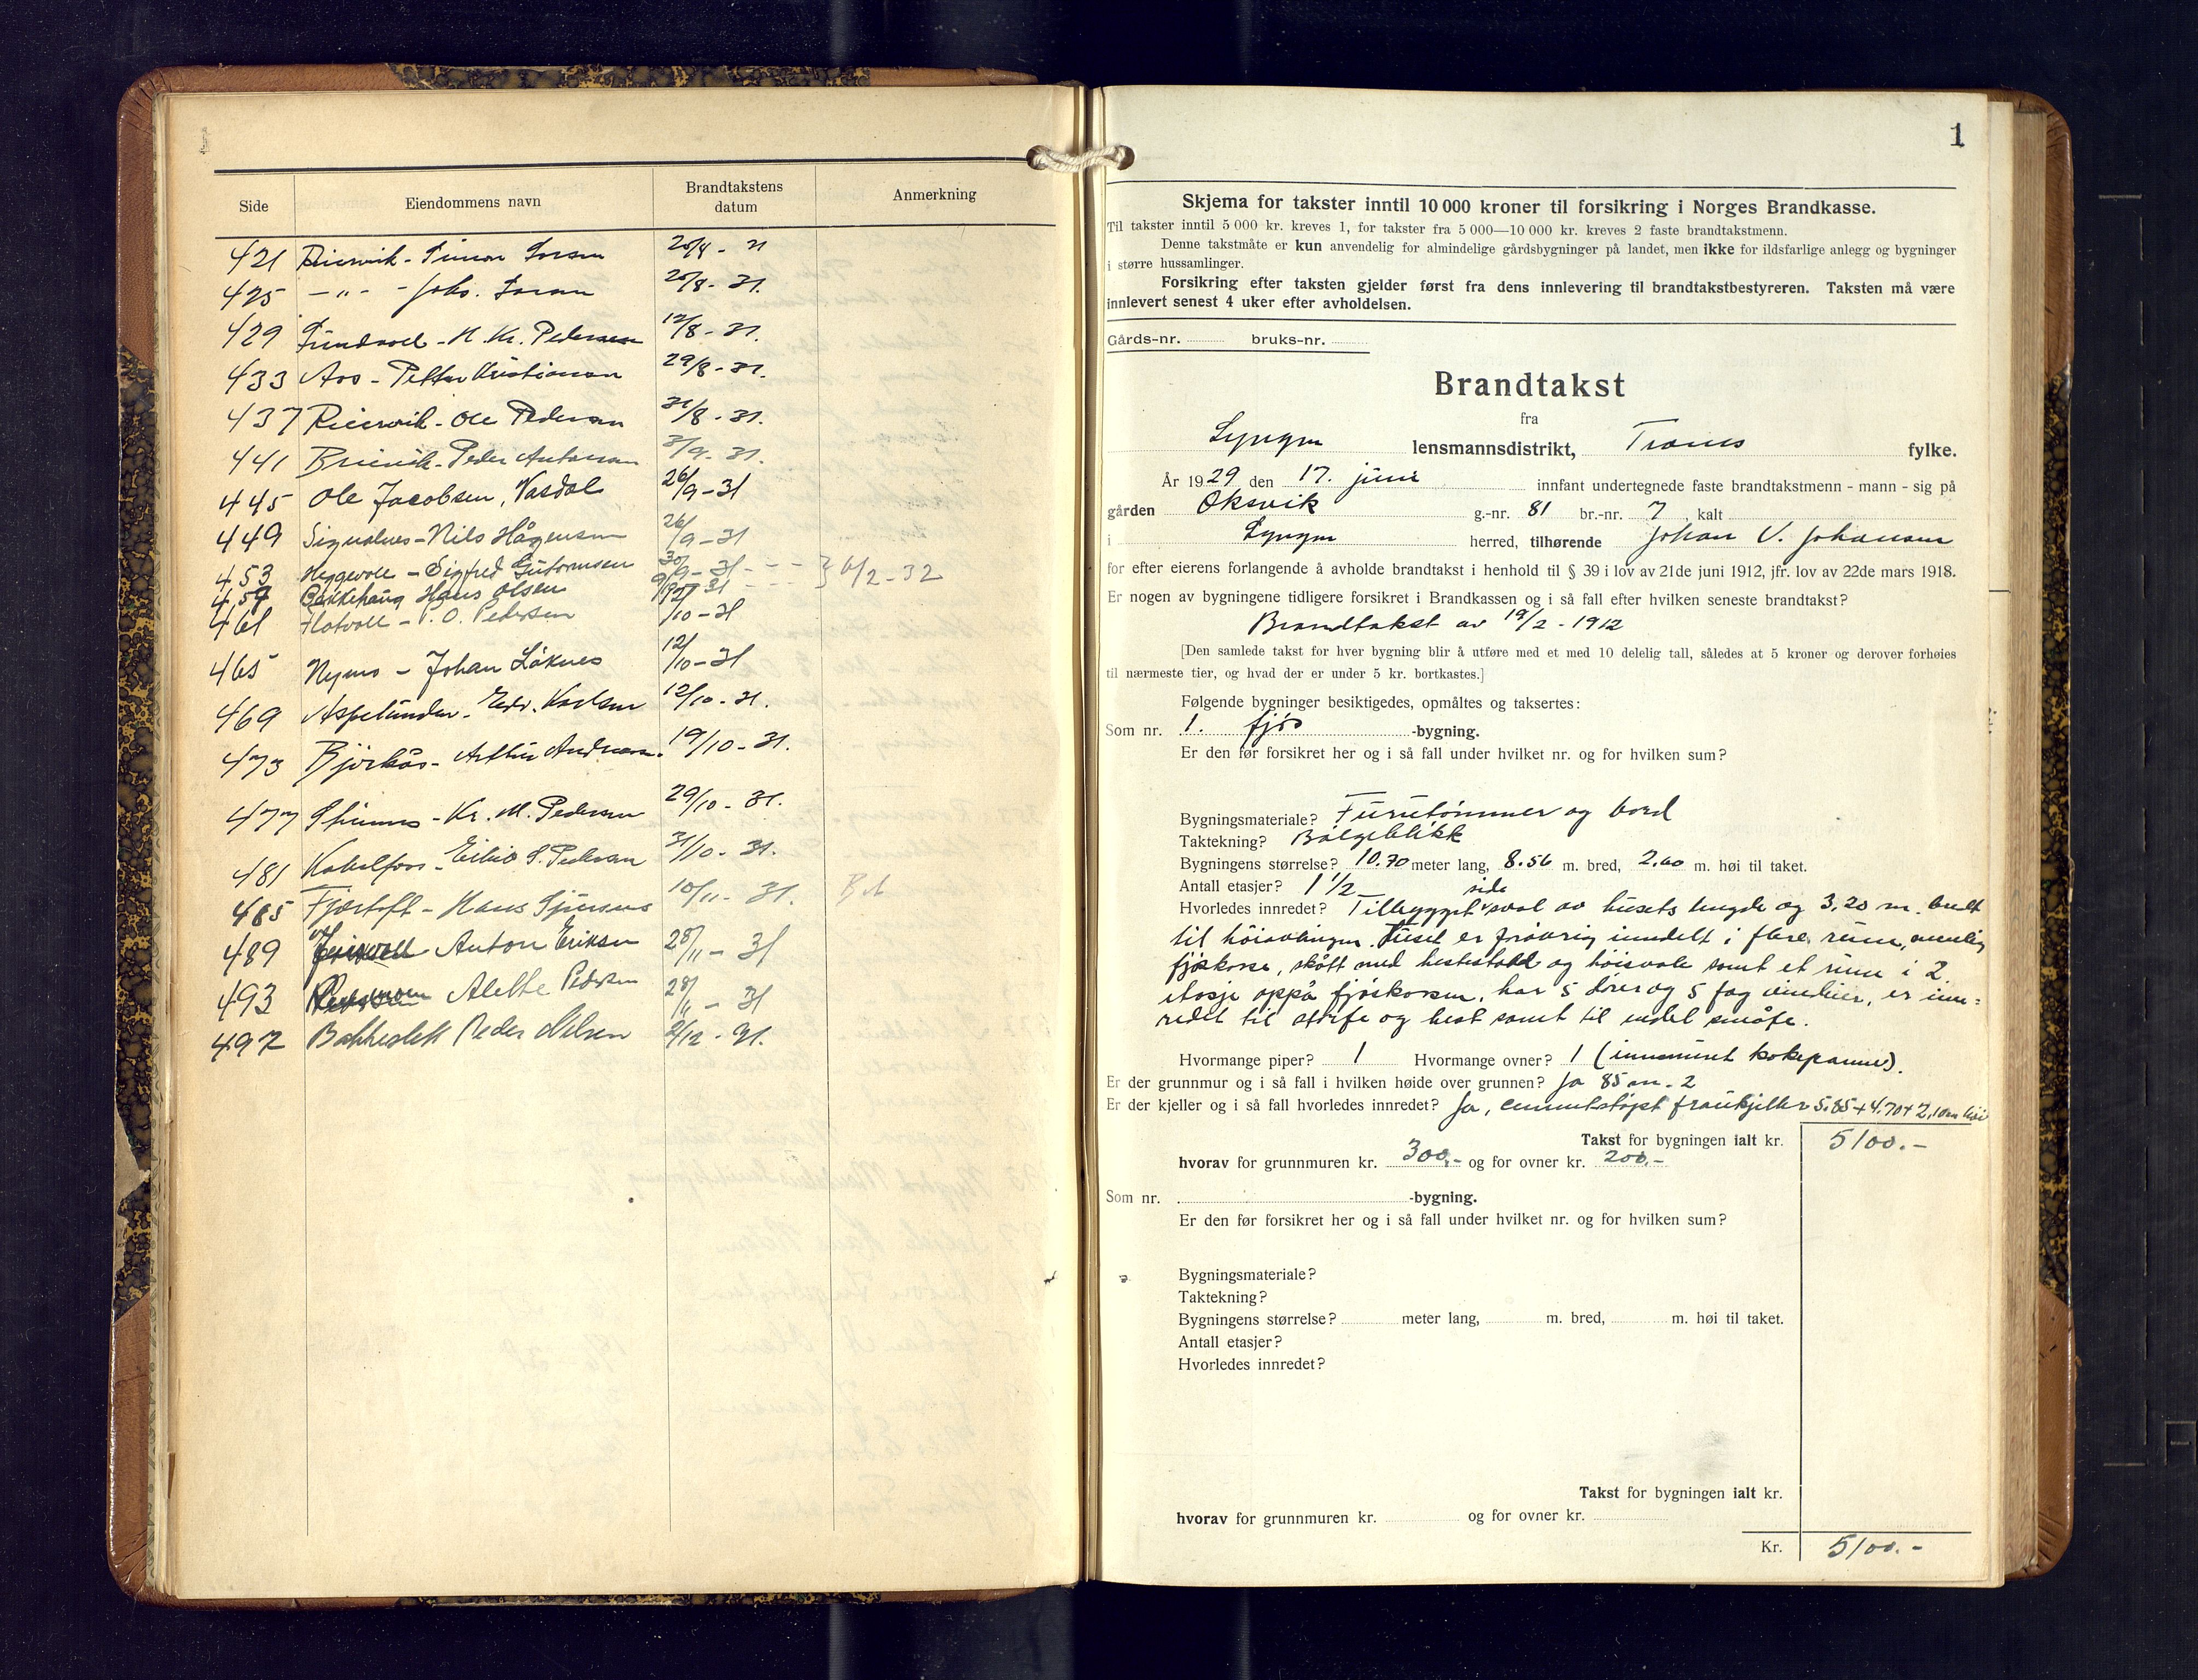 Side Eiendommens navn Brandtakstens datum Anmerkning
421
425 - " - - Johs.
429 - H. Kr. Pedersen 12/8 - 31.
433 Aas - Petter Kristiansen 29/8 - 31.
437 - Ole Pedersen 31/8 - 31.
441 - Peder Antonsen 3/9 - 31.
445 Ole Jacobsen, Vasdal 26/9 - 31
449 Signalnes - Nils Hågensen 26/9 - 31
453 Heggevoll - Sigfred Guttormsen 30/9 - 31 - - - } 6/2 - 32
457 Bakkehaug Hans Olsen 31 - - -
461 Flatvoll - P. O. Pedersen /10 - 31
465 Nymo - Johan Låknes 12/10 - 31
469 - Edv. Karlsen 12/10 - 31.
473 Björkås - Arthur Andreasen. 19/10 - 31.
477 - Kr. M. Pedersen 29/10 - 31.
481 31/10 - 31.
485 Fjærtoft - Hans 10/11 - 31.
489 Anton Eriksen 28/11 - 31
493 Alette Pedersen 28/11 - 31
497 Bakkeslett Peder Nilsen 2/12 - 31.
1
Skjema for takster inntil 10 000 kroner til forsikring i Norges Brandkasse.
Til takster inntil 5 000 kr. kreves 1, for takster fra 5 000—10 000 kr. kreves 2 faste brandtakstmenn.
Denne takstmåte er kun anvendelig for almindelige gårdsbygninger på landet, men ikke for ildsfarlige anlegg og bygninger
i større hussamlinger.
Forsikring efter taksten gjelder først fra dens innlevering til brandtakstbestyreren. Taksten må være
innlevert senest 4 uker efter avholdelsen.
Gårds-nr. bruks-nr.
Brandtakst
fra
Lyngen lensmannsdistrikt, Troms fylke.
År 1929 den 17. juni innfant undertegnede faste brandtakstmenn - mann - sig på
gården Oksvik g.-nr. 81 br.-nr. 7, kalt
i Lyngen herred, tilhørende Johan V. Johansen
for efter eierens forlangende å avholde brandtakst i henhold til § 39 i lov av 21de juni 1912, jfr. lov av 22de mars 1918.
Er nogen av bygningene tidligere forsikret i Brandkassen og i så fall efter hvilken seneste brandtakst?
Brandtakst av 19/2 - 1912
[Den samlede takst for hver bygning blir å utføre med et med 10 delelig tall, således at 5 kroner og derover forhøies
til nærmeste tier, og hvad der er under 5 kr. bortkastes.]
Følgende bygninger besiktigedes, opmåltes og taksertes:
Som nr. 1. fjøs -bygning.
Er den før forsikret her og i så fall under hvilket nr. og for hvilken sum?
Bygningsmateriale? Furutømmer og bord
Taktekning? Bølgeblikk
Bygningens størrelse? 10.70 meter lang, 8.56 m. bred, 2.60 m. høi til taket.
Antall etasjer? 1 1/2
side
Hvorledes innredet? Tilbygget sval av husets lengde og 3,20 m. bredt
til høiavlingen. Huset er forøvrig inndelt i flere rum, nemlig
fjøskorse, skått med hestestald og høisvale samt et rum i 2
etasje oppå fjøskorsen, har 5 dører og 5 fag vinduer, er inn=
redet til storfe og hest samt til endel småfe.
Hvormange piper? 1 Hvormange ovner? 1 (innmuret kokepanne).
Er der grunnmur og i så fall i hvilken høide over grunnen? Ja 85 cm. 2
Er der kjeller og i så fall hvorledes innredet? Ja, cementstøpt 5.85 + 4.70 + 2,10 m høi
Takst for bygningen ialt kr. 5100.-
hvorav for grunnmuren kr. 300.- og for ovner kr. 200.-
Som nr. -bygning.
Er den før forsikret her og i så fall under hvilket nr. og for hvilken sum?
Bygningsmateriale?
Taktekning?
Bygningens størrelse? meter lang, m. bred, m. høi til taket.
Antall etasjer?
Hvorledes innredet?
Takst for bygningen ialt kr.
hvorav for grunnmuren kr. og for ovner kr.
Kr. 5100.-